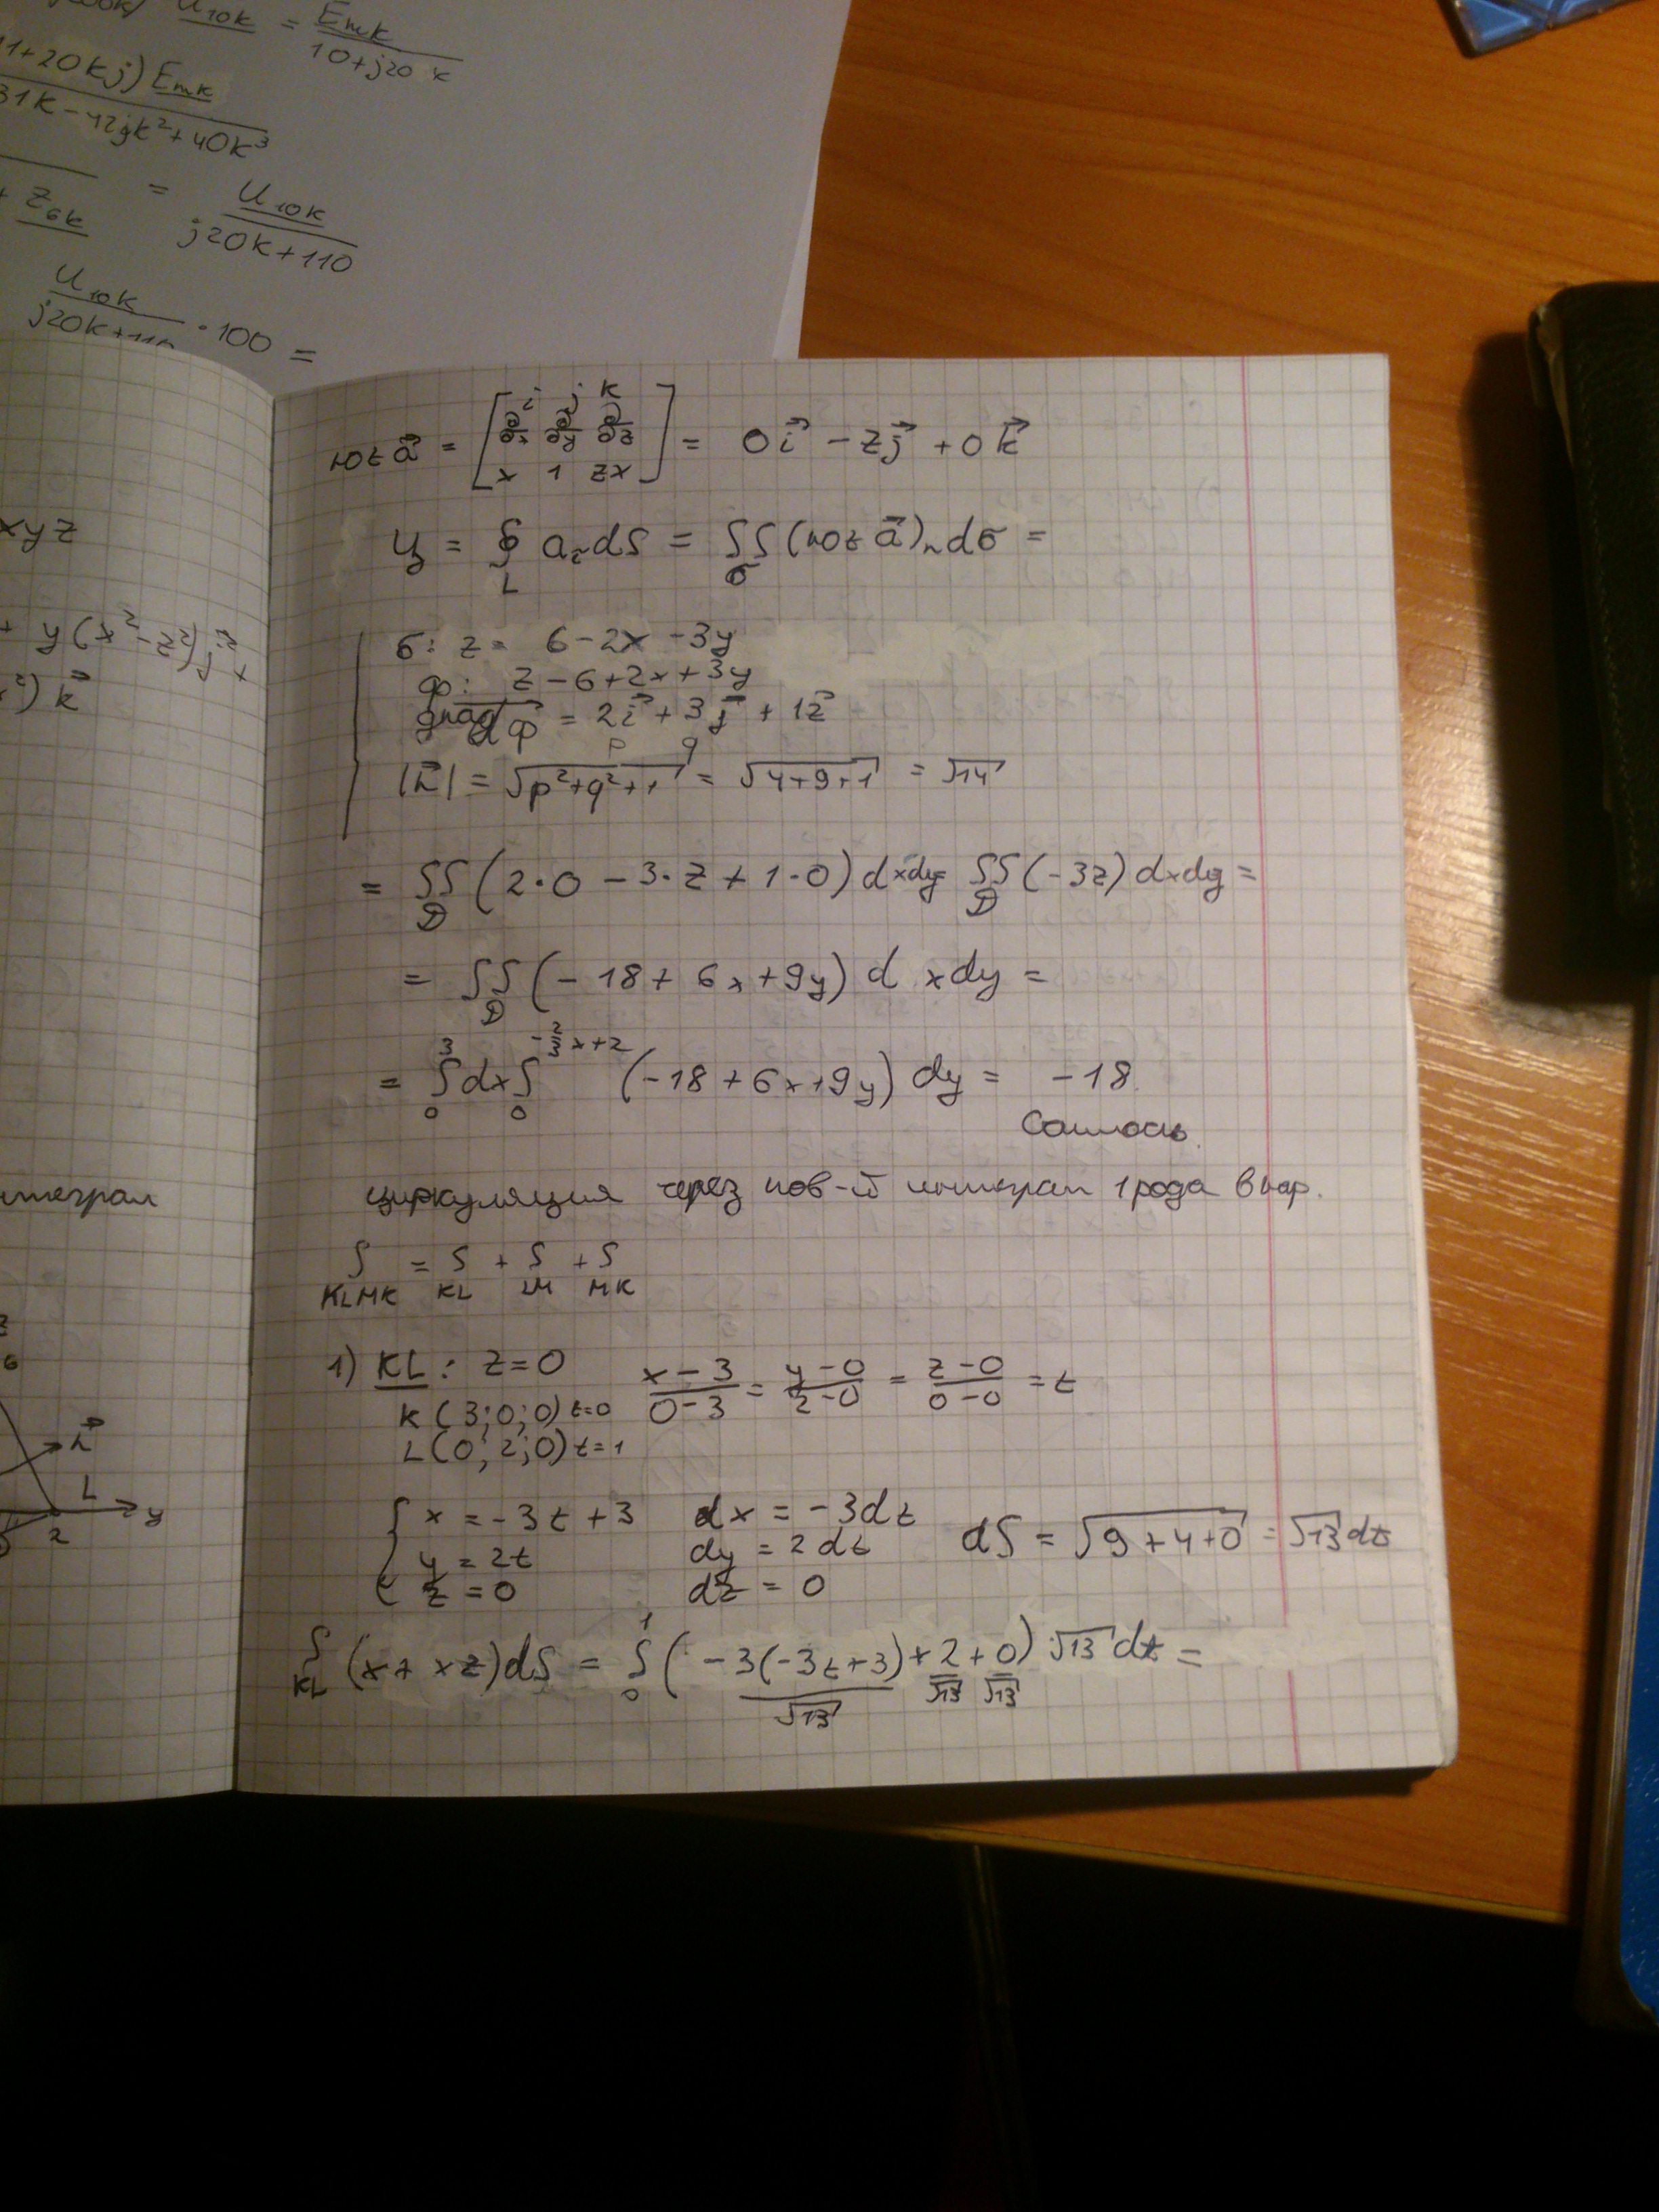 U10k = Emk / (10+j20 k)
1+20kj) Emk
31k - 42jk² + 40k³
+ Z6k = U10k / (j20k+110)
U10k / (j20k+110) · 100 =
xyz
+ y(x²-z²)j +
²) k
интеграл
n
L
2 y
rot a = [ i j k
∂/∂x ∂/∂y ∂/∂z
x 1 zx ] = 0i - zj + 0k
Ц = ∮L aτ dS = ∬σ (rot a)n dσ =
σ: z = 6-2x-3y
φ: z-6+2x+3y
grad φ = 2i + 3j + 1z
p q
|n| = √(p²+q²+1) = √(4+9+1) = √14
= ∬D (2·0 - 3·z + 1·0) dxdy = ∬D (-3z) dxdy =
= ∬D (-18 + 6x + 9y) d xdy =
= ∫₀³ dx ∫₀^(-2/3 x+2) (-18+6x+9y) dy = -18
Сошлось.
циркуляция через пов-й интеграл 1 рода
∫KLMK = ∫KL + ∫LM + ∫MK
1) KL: z=0 (x-3)/(0-3) = (y-0)/(2-0) = (z-0)/(0-0) = t
K (3;0;0) t=0
L (0;2;0) t=1
{ x = -3t+3 dx = -3dt dS = √(9+4+0) = √13 dt
y = 2t dy = 2dt
z = 0 dz = 0
∫KL (x+ xz)dS = ∫₀¹ ( -3(-3t+3)/√13 + 2/√13 + 0/√13 ) · √13 dt =